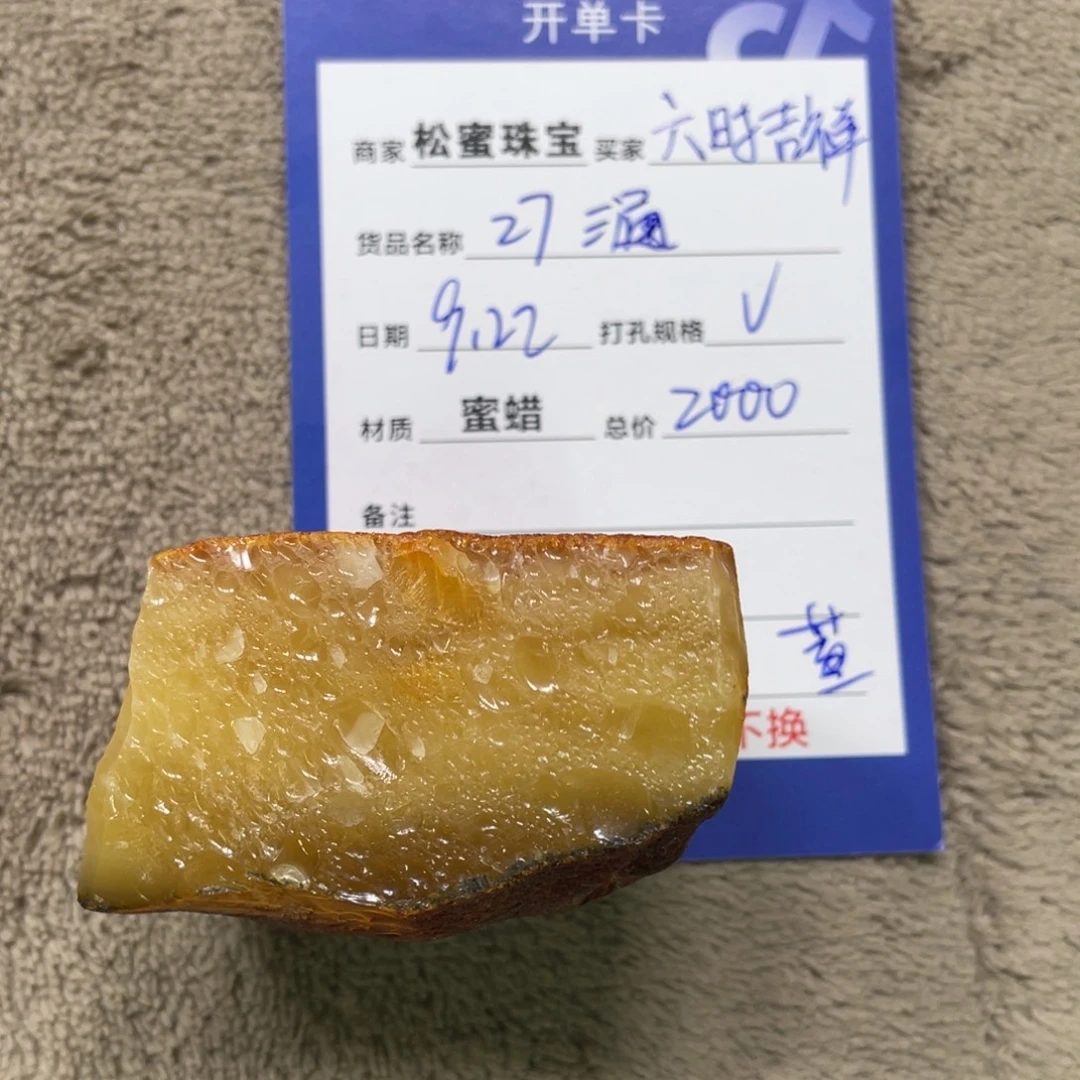 开单卡
商家 松蜜珠宝 买家 六时吉祥
货品名称 27
日期 9.22 打孔规格 √
材质 蜜蜡 总价 2000
备注
不换